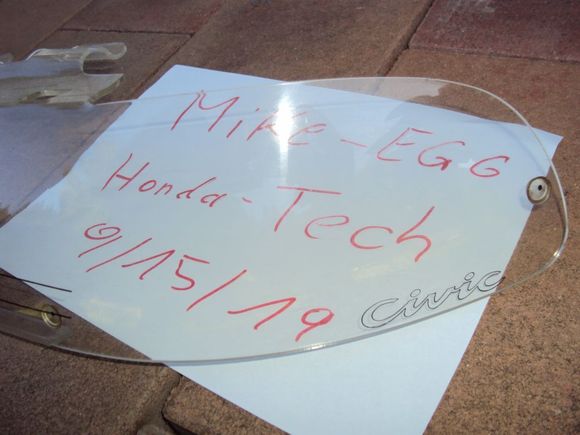 Mike-EGG
Honda-Tech
9/15/19
Civic